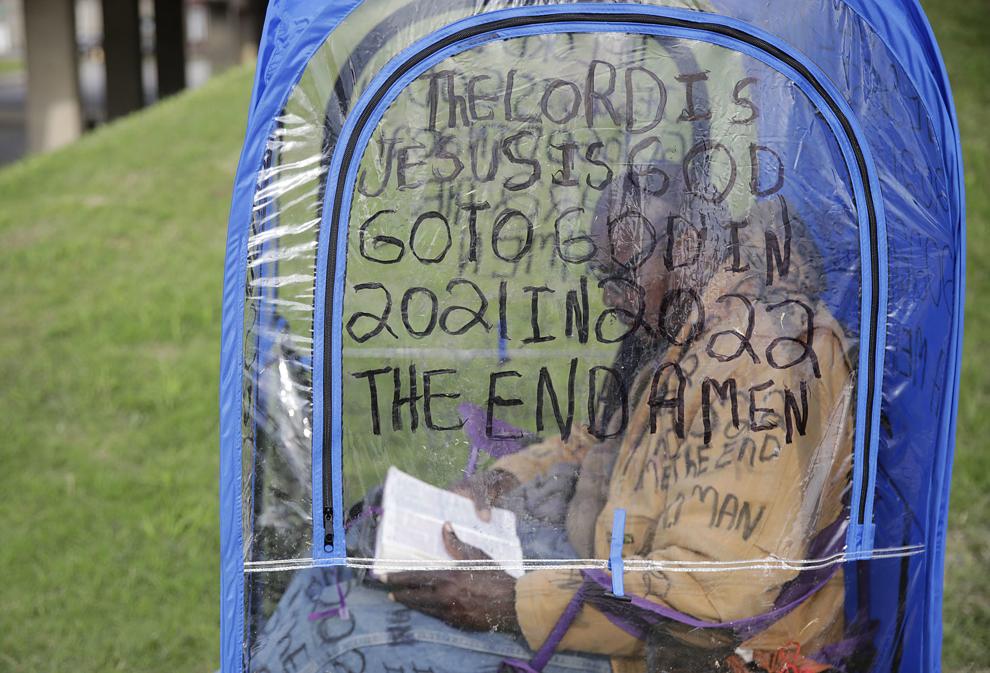 THE LORD IS
JESUS IS GOD
GO TO GOD IN
2021 IN 2022
THE END AMEN
THE END
MAN